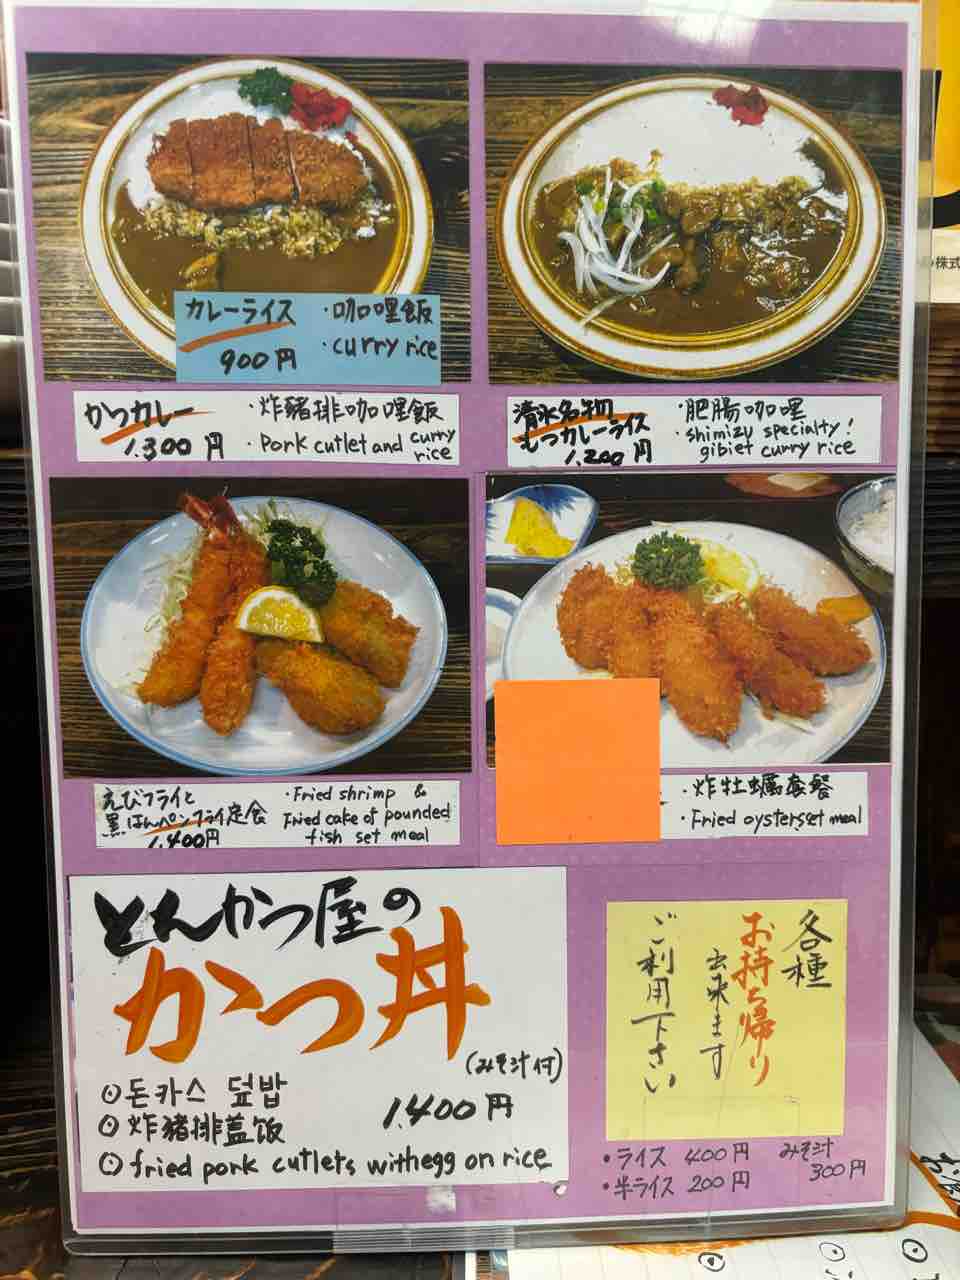 カレーライス
900円
・咖哩飯
・curry rice
かつカレー
1.300円
・炸豬排咖哩飯
・Pork cutlet and curry rice
清水名物
もつカレーライス
1.200円
・肥腸咖哩
・shimizu specialty!
gibiet curry rice
えびフライと
黒はんペンフライ定食
1.400円
・Fried shrimp &
Fried cake of pounded
fish set meal
・炸牡蠣套餐
・Fried oyster set meal
とんかつ屋の
かつ丼
(みそ汁付)
1.400円
◎돈카스 덮밥
◎炸豬排盖饭
◎fried pork cutlets with egg on rice
各種
お持ち帰り
出来ます
ご利用下さい
・ライス 400円
・半ライス 200円
みそ汁
300円
株式